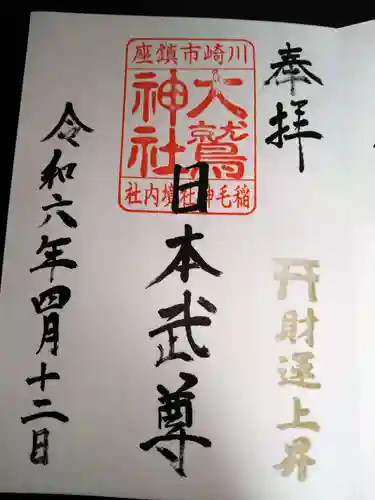 奉拝
財運上昇
川崎市鎮座
大鷲神社
稲毛神社境内社
日本武尊
令和六年四月十二日